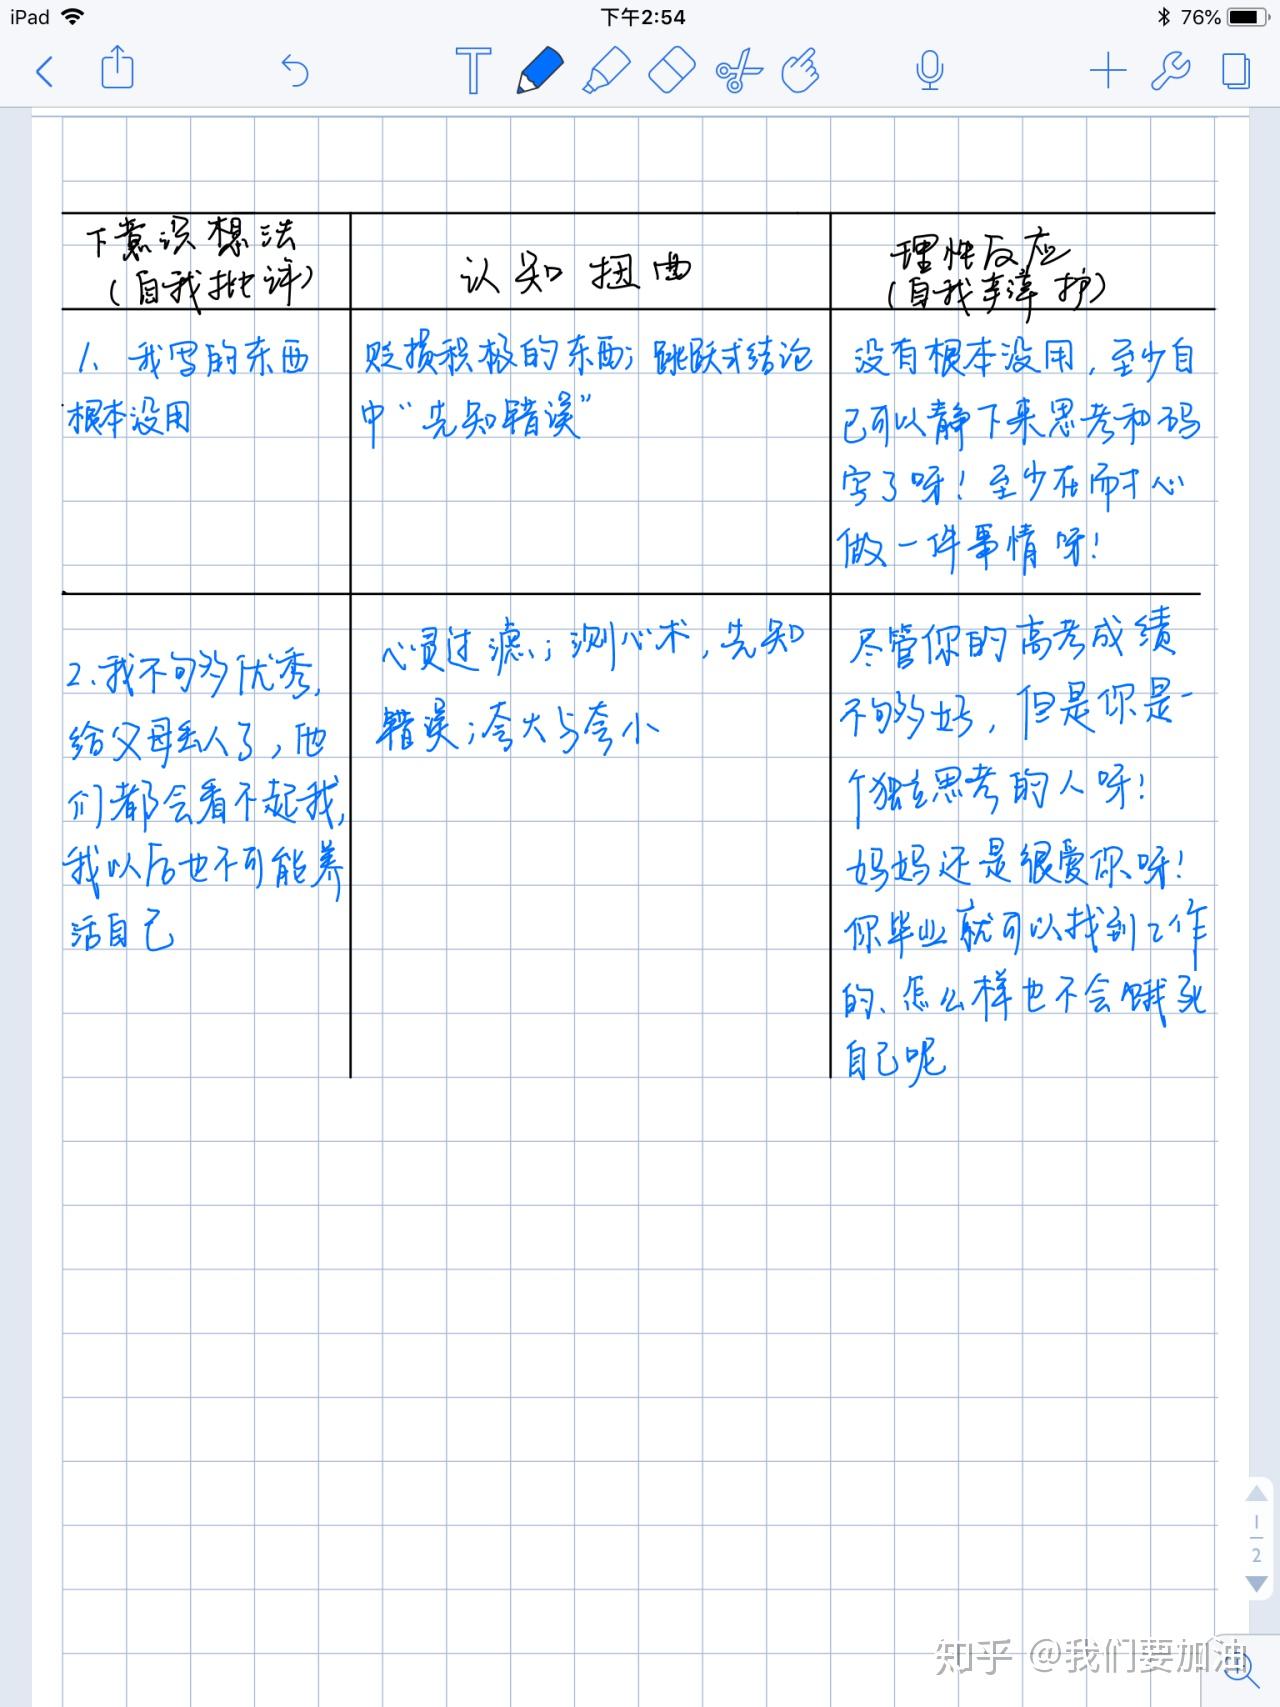 iPad
下午2:54
76%
下意识想法
(自我批评)
认知扭曲
理性反应
(自我辩护)
1、我写的东西
根本没用
贬损积极的东西;跳跃式结论
中“先知错误”
没有根本没用,至少自
己可以静下来思考和码
字了呀!至少在耐心
做一件事情呀!
2.我不够优秀,
给父母丢人了,他
们都会看不起我,
我以后也不可能养
活自己
心灵过滤、;测心术,先知
错误;夸大与夸小
尽管你的高考成绩
不够好,但是你是一
个独立思考的人呀!
妈妈还是很爱你呀!
你毕业就可以找到工作
的、怎么样也不会饿死
自己呢
1
2
知乎 @我们要加油